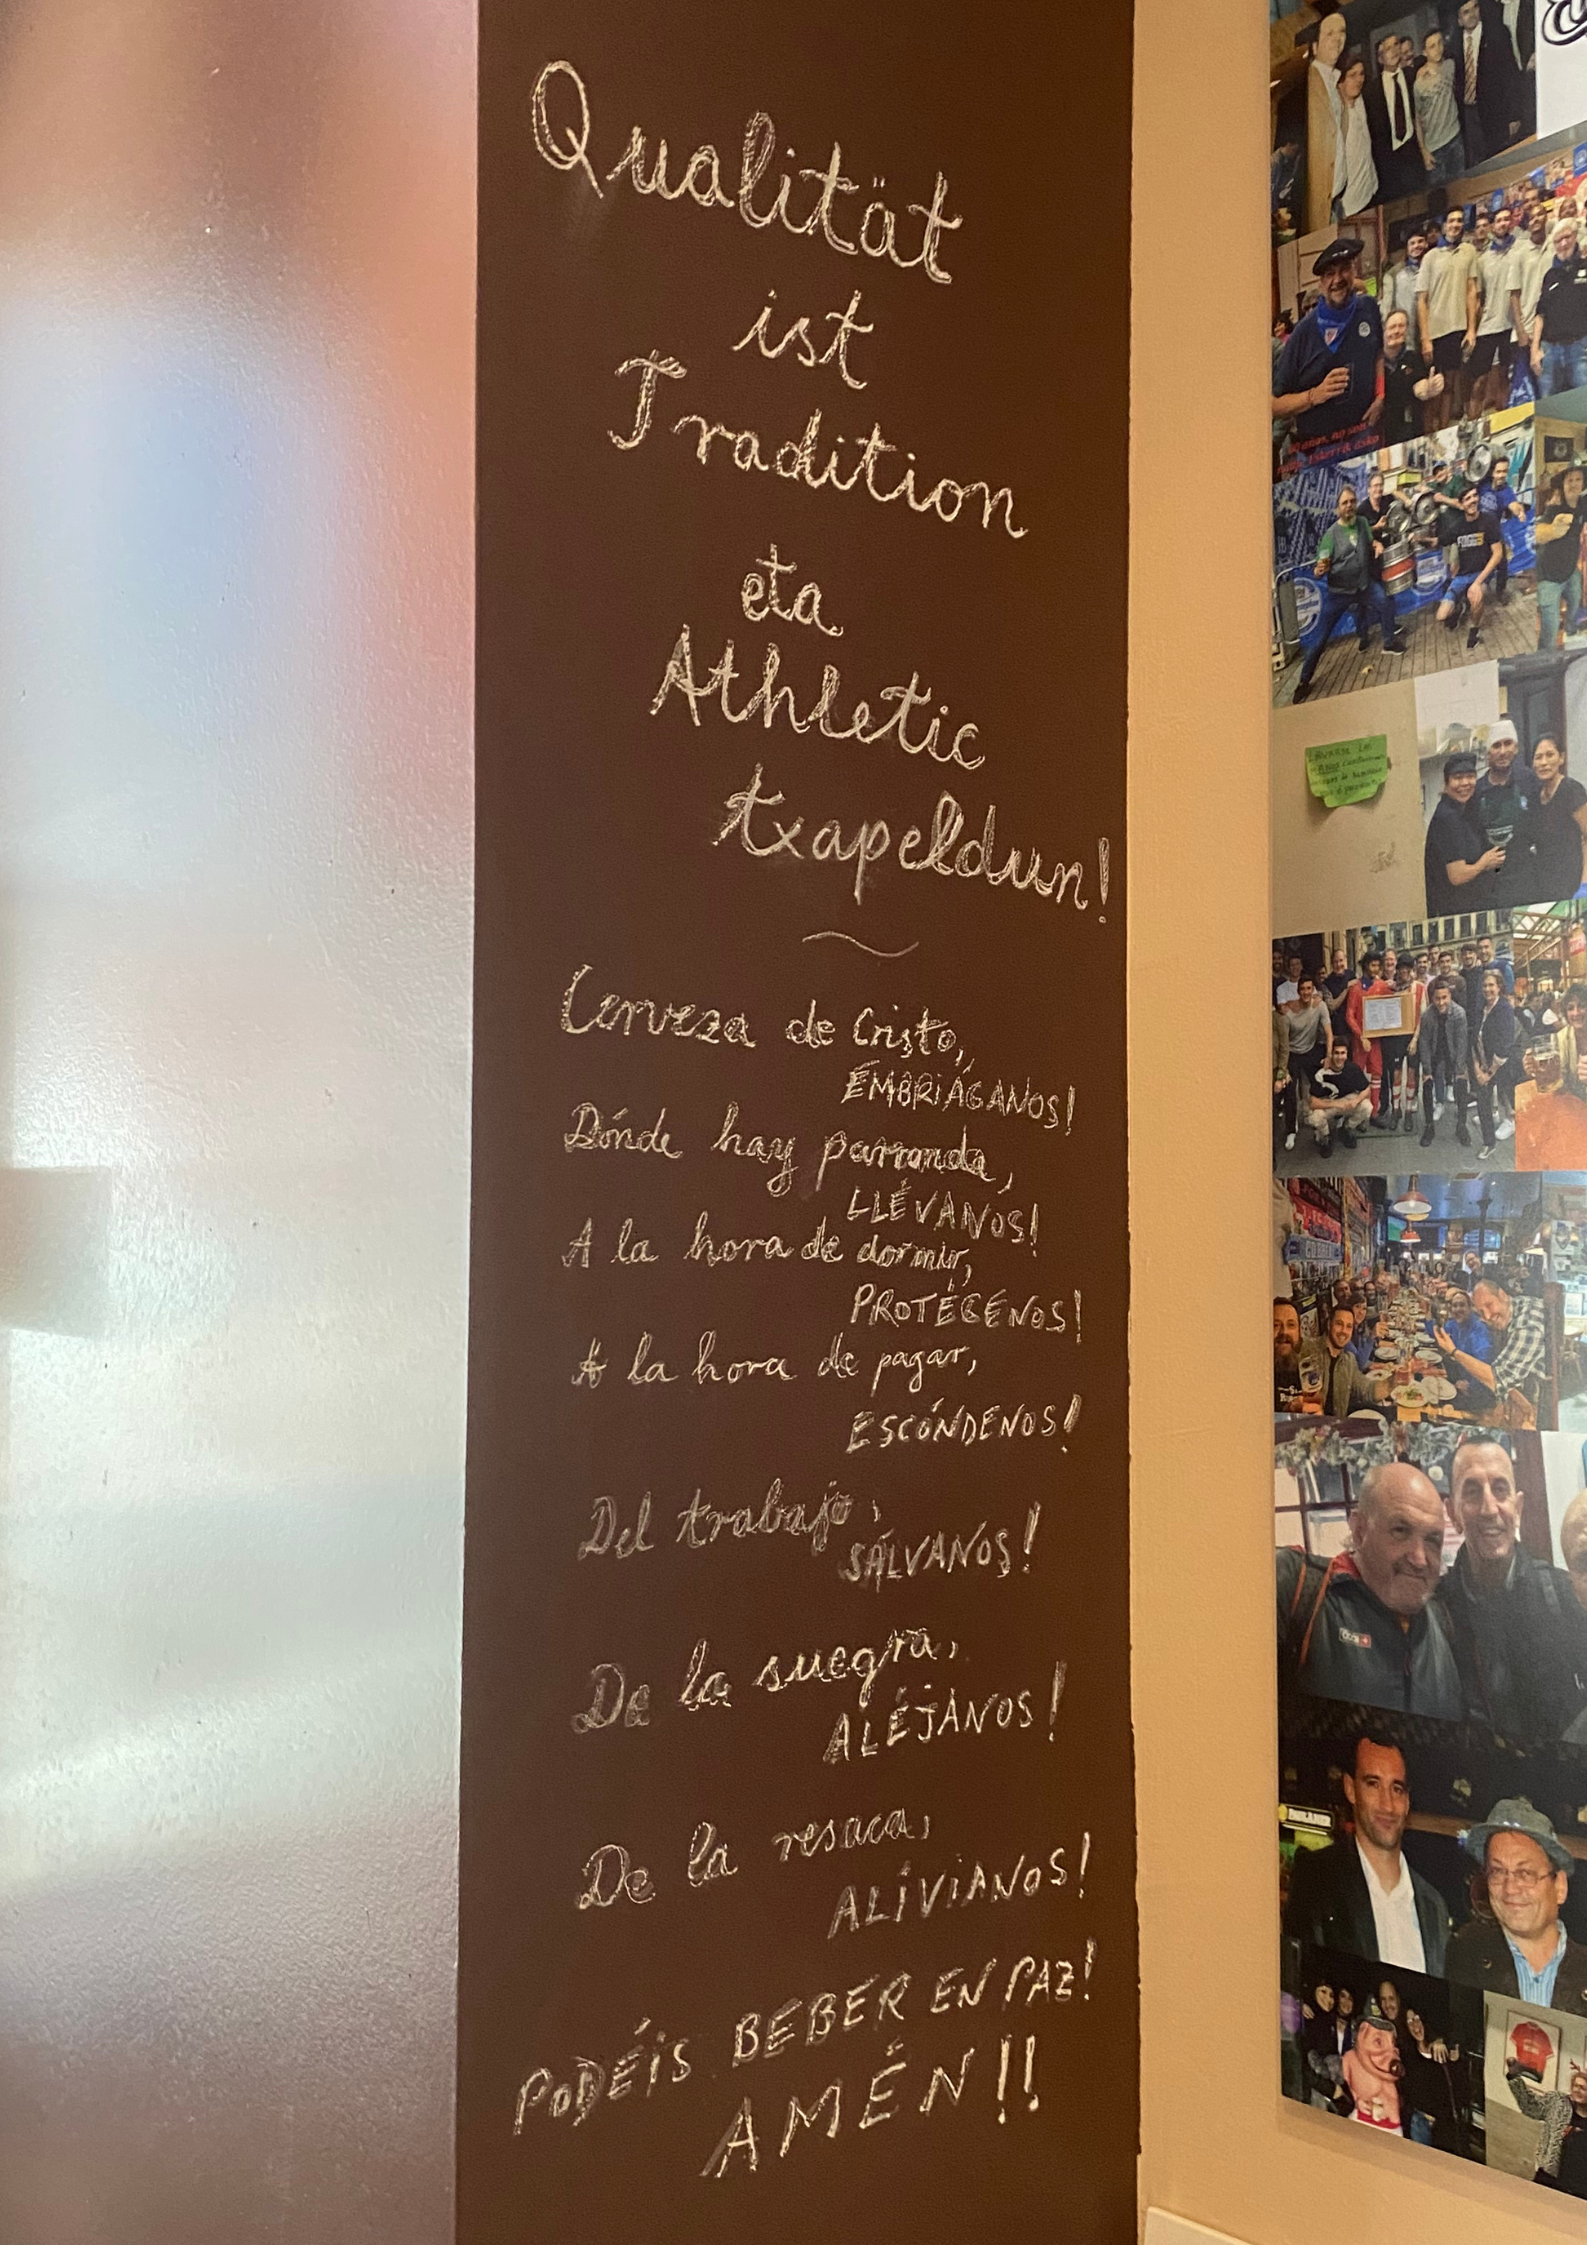 Qualität
ist
Tradition
eta
Athletic
txapeldun!
Cerveza de Cristo,
EMBRIÁGANOS!
Dónde hay parranda,
LLÉVANOS!
A la hora de dormir,
PROTÉGENOS!
A la hora de pagar,
ESCÓNDENOS!
Del trabajo,
SÁLVANOS!
De la suegra,
ALÉJANOS!
De la resaca,
ALÍVIANOS!
PODÉIS BEBER EN PAZ!
AMÉN!!
LAVARSE LAS
MANOS
PAULANER